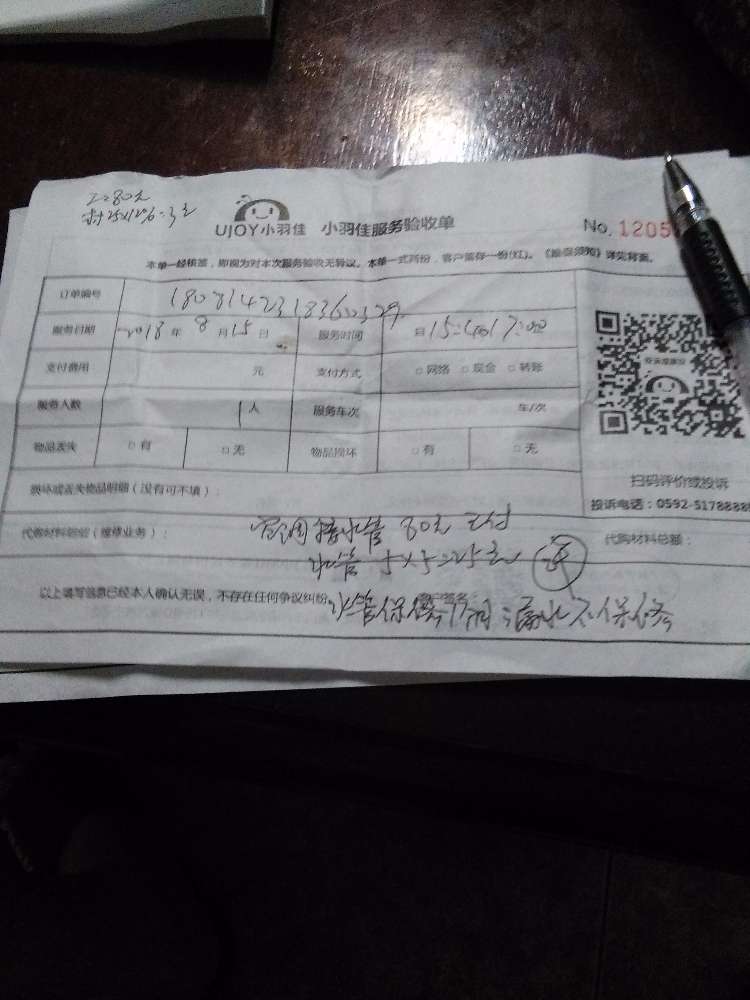 工:80元
材:25×12%=3元
UJOY小羽佳 小羽佳服务验收单 No. 1205
本单一经核签，即视为对本次服务验收无异议。本单一式两份，客户留存一份(红)。《验收须知》详见背面。
订单编号
服务日期 2018年 8月15日 服务时间 自15:40 17:00
支付费用 元 支付方式 □网络 □现金 □转账
服务人数 1人 服务车次 车/次
物品丢失 □有 □无 物品损坏 □有 □无
扫码评价或投诉
投诉电话：0592-5178888
损坏或丢失物品明细（没有可不填）：
代购材料明细（维修业务）： 空调接水管 80元 已付 代购材料总额：
水管 5×5=25元
以上填写信息已经本人确认无误，不存在任何争议纠纷 客户签名：
水管保修 漏水不保修